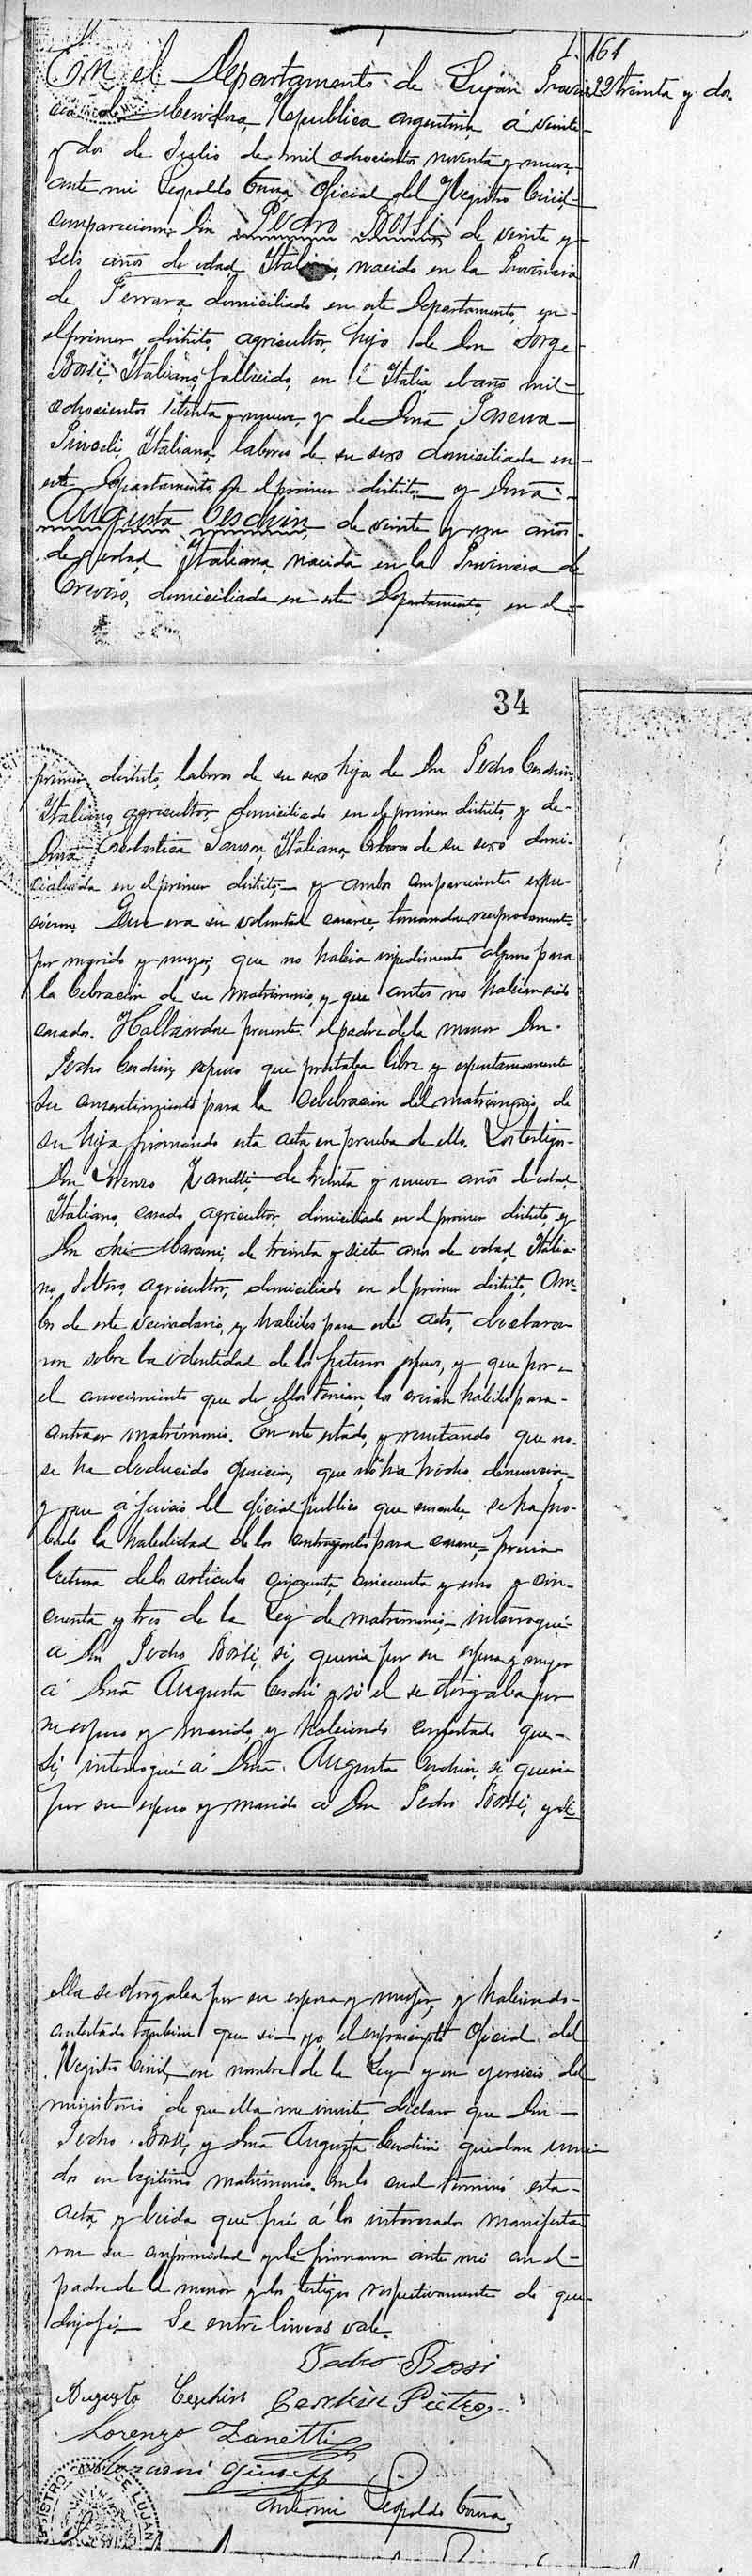 161
En el Departamento de Luján Provin- 32 treinta y dos.
cia de Mendoza, Republica Argentina, á veinte
y dos de Julio de mil ochocientos noventa y nueve,
ante mi Leopoldo Oficial del Registro Civil
comparecieron Don Pedro Bossi, de veinte y
seis años de edad, Italiano, nacido en la Provincia
de Ferrara, domiciliado en este Departamento, en
el primer distrito, agricultor, hijo de Don Jorge
Bossi, Italiano, fallecido, en Italia el año mil
ochocientos setenta y nueve, y de Doña Pascua
Italiana, labores de su sexo domiciliada en
este Departamento en el primer distrito y Doña
Augusta Ceschin, de veinte y un años
de edad, Italiana, nacida en la Provincia de
Treviso, domiciliada en este Departamento, en el
34
primer distrito, labores de su sexo hija de Don Pedro Ceschin
Italiano, agricultor, domiciliado en el primer distrito, y de
Doña Italiana, labores de su sexo domi-
ciliada en el primer distrito, y ambos comparecientes expu-
sieron: Que era su voluntad casarse, tomandose reciprocamente
por marido y mujer, que no habia impedimento alguno para
la celebracion de su matrimonio, y que antes no habian sido
casados. Hallandose presente el padre de la menor Don
Pedro Ceschin, expuso que prestaba libre y espontaneamente
su consentimiento para la celebracion del matrimonio de
su hija firmando esta acta en prueba de ello. Los testigos
Don Lorenzo Zanetti, de treinta y nueve años de edad,
Italiano, casado, agricultor, domiciliado en el primer distrito, y
Don de treinta y siete años de edad, Italia-
no, Soltero, agricultor, domiciliado en el primer distrito, Am-
bos de este vecindario, y habiles para este acto, declara-
ron sobre la identidad de los futuros esposos, y que por
el conocimiento que de ellos tenian, los creian habiles para
contraer matrimonio. En este estado, y resultando que no
se ha deducido oposicion, que no se ha hecho denuncia,
y que á juicio del oficial publico que suscribe se ha pro-
bado la habilidad de los contrayentes para casarse, previa
lectura de los articulos cincuenta, cincuenta y uno y cin-
cuenta y tres de la Ley de matrimonio, interrogué
a Don Pedro Bossi, si queria por su esposa y mujer
á Doña Augusta Ceschi y si el se otorgaba por
su esposo y marido, y habiendo contestado que
si, interrogué á Doña Augusta Ceschin, si queria
por su esposo y marido a Don Pedro Bossi, y si
ella se otorgaba por su esposa y mujer, y habiendo
contestado tambien que si yo, el infrascripto Oficial del
Registro Civil, en nombre de la Ley y en ejercicio del
ministerio de que ella me inviste, declaro que Don
Pedro Bossi, y Doña Augusta Ceschin quedan uni-
dos en legitimo matrimonio. Con lo cual terminó esta
acta, y leida que fué á los interesados manifesta-
ron su conformidad y la firmaron ante mi con el
padre de la menor y los testigos respectivamente de que
doy fé. Se entre lineas vale.
Pedro Bossi
Augusta Ceschin Ceschin Pietro
Lorenzo Zanetti
Ante mi Leopoldo